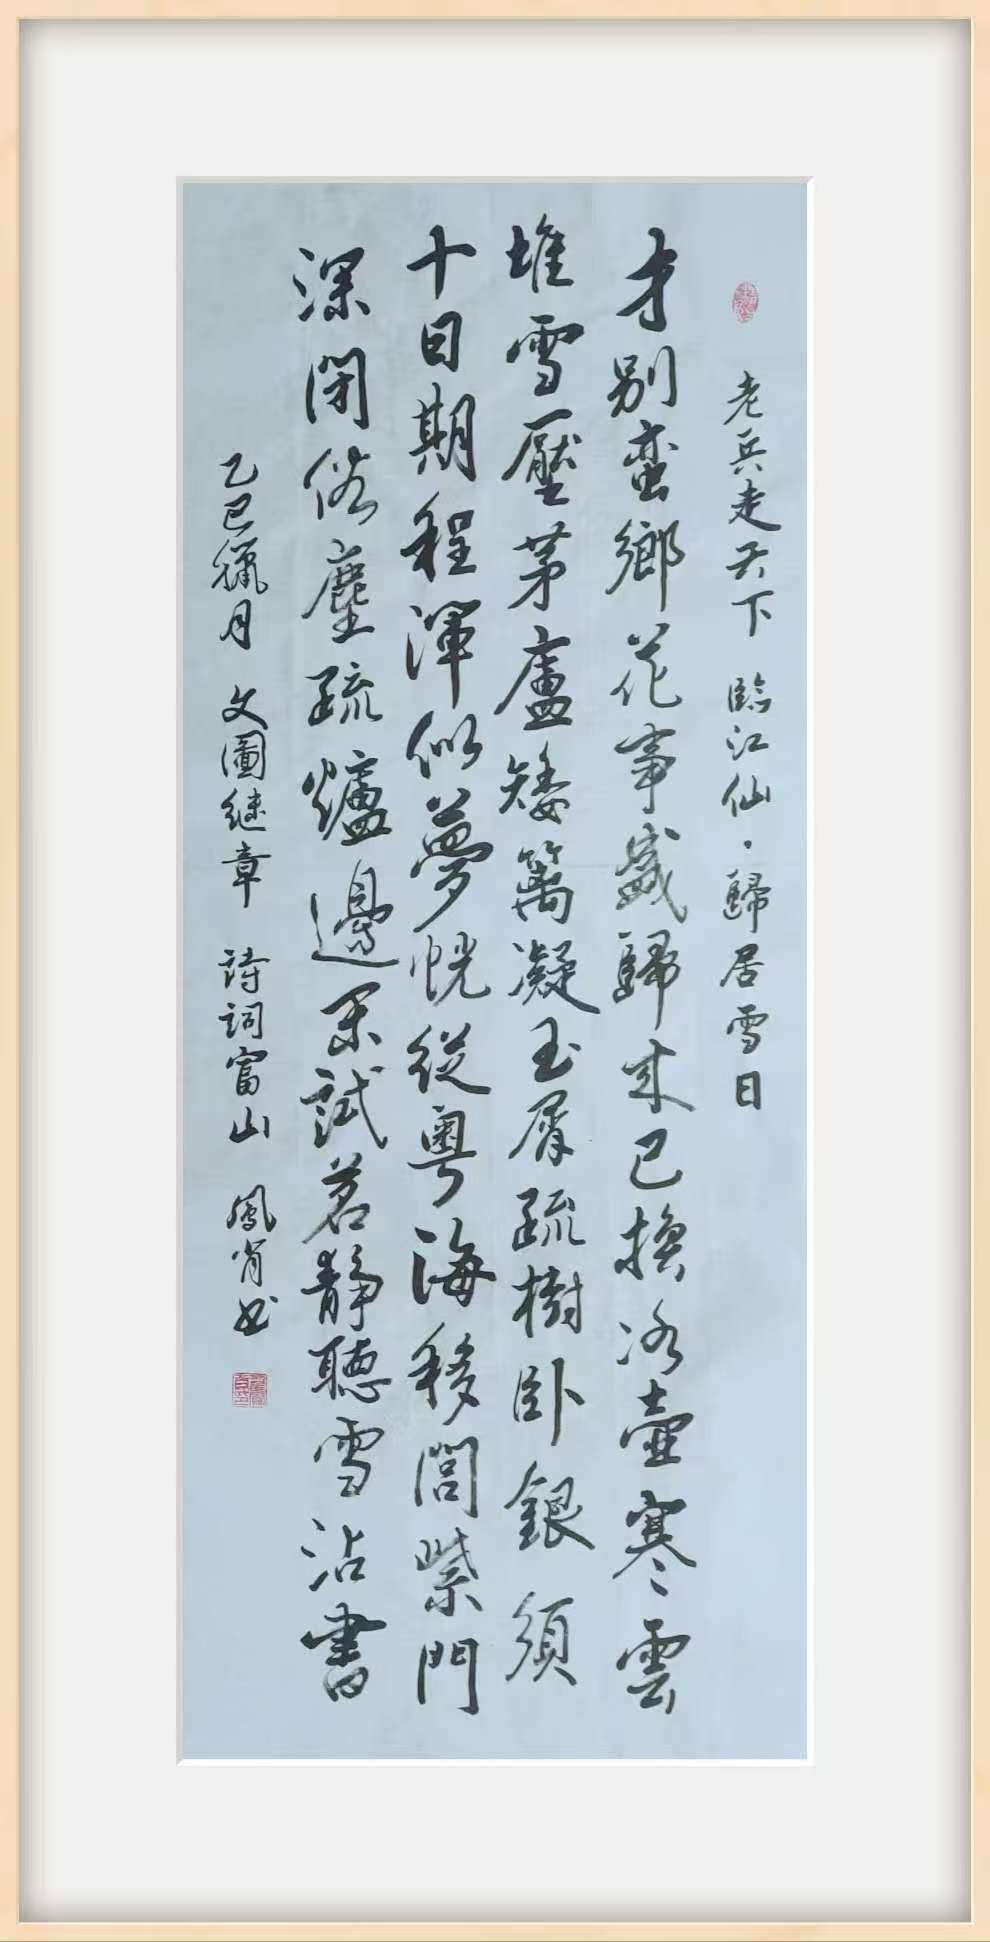 老兵走天下 臨江仙·歸居雪日
才别蛮鄉花事盛歸来已換冰壺寒雲
堆雪壓茅廬矮篱凝玉屑疏樹卧銀須
十日期程渾似夢恍從粤海移閭柴門
深閉俗塵疏爐邊閑試茗靜聽雪沾書
乙巳獵月 文圖继章 詩詞富山 鳳肖书